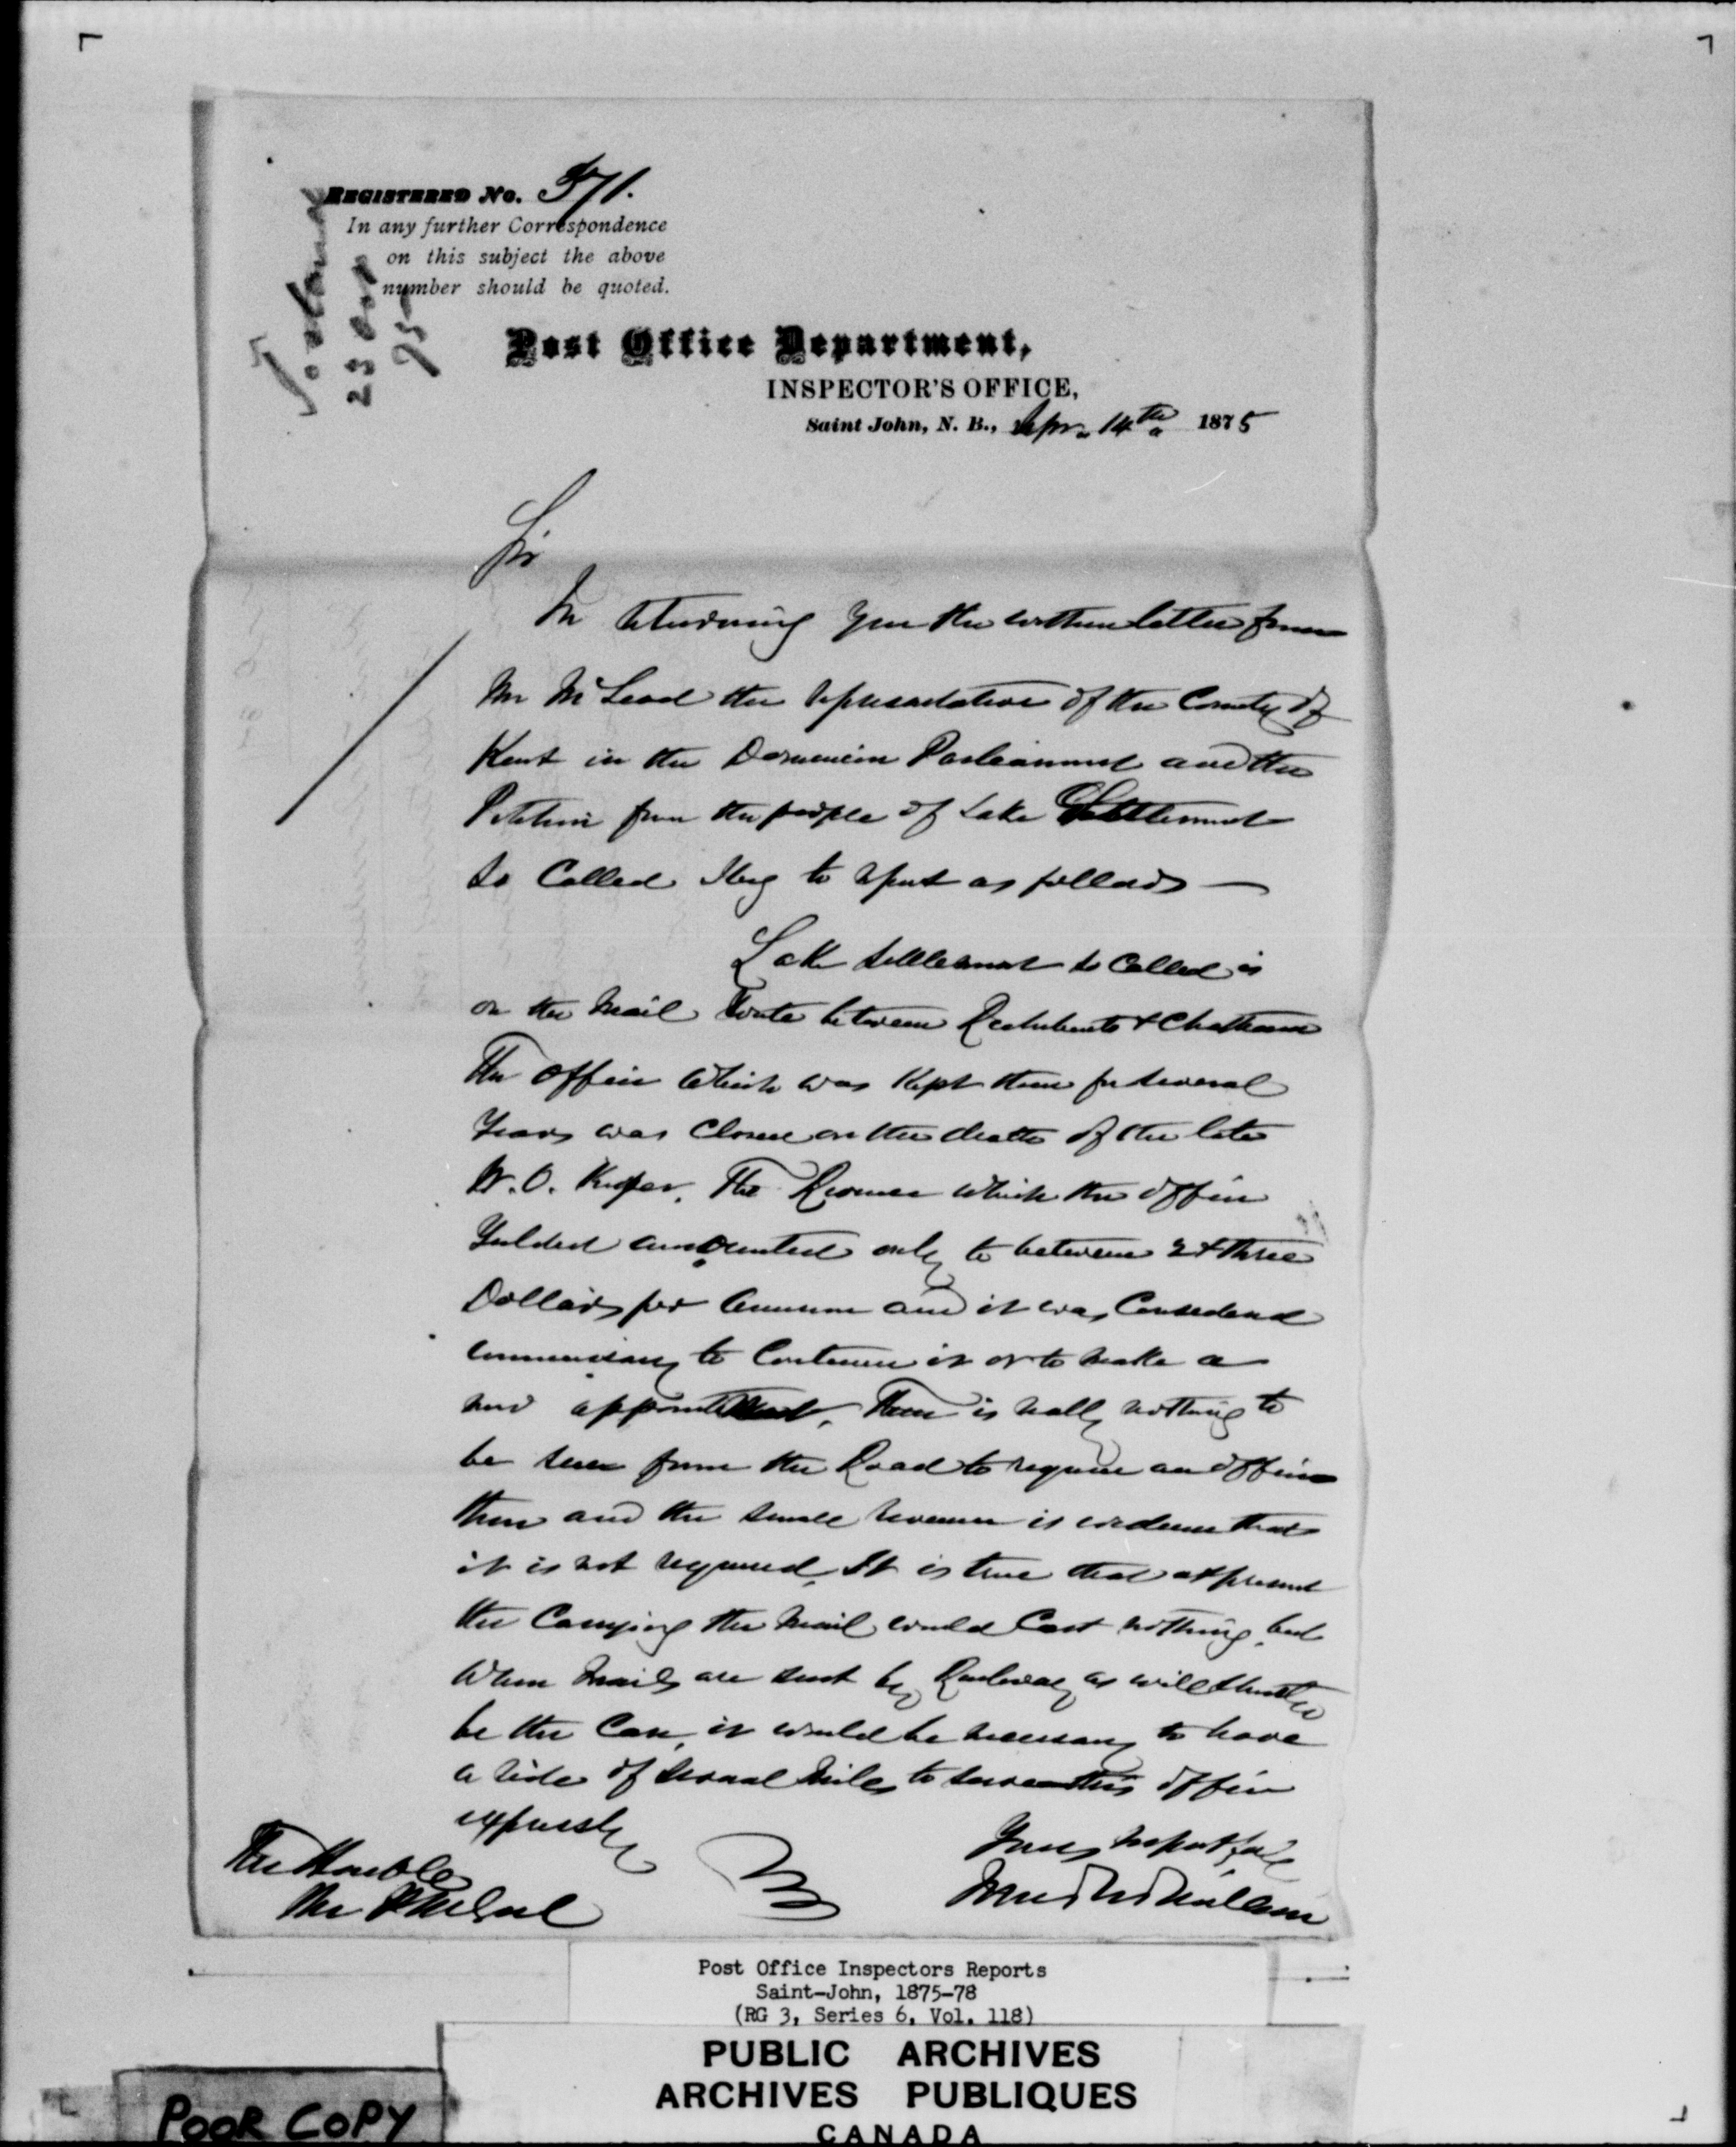 REGISTERED No. 571.
In any further Correspondence
on this subject the above
number should be quoted.
Post Office Department,
INSPECTOR'S OFFICE,
Saint John, N. B., Apr. 14th 1875
Sir
In returning you the within letter from
Mr McLeod the representative of the County of
Kent in the Dominion Parliament and the
Petition from the people of Lake Settlement
so Called I beg to report as follows —
Lake Settlement so Called is
on the Mail Route between Richibucto & Chatham
The office which was Kept there for several
Years was Closed on the death of the late
W. O. Keeper. The Revenue which the office
Yielded amounted only to between 2 & three
Dollars per Annum and it was Considered
unnecessary to Continue it or to make a
new appointment. There is really nothing to
be seen from the Road to require an office
there and the small revenue is evidence that
it is not required. It is true that at present
the Carrying the Mail would Cost nothing, but
When Mails are sent by Railway as will shortly
be the Case, it would be necessary to have
a ride of several Miles to serve this office
expressly
Yours respectfully
The Honble
The P M Genl
Post Office Inspectors Reports
Saint-John, 1875-78
(RG 3, Series 6, Vol. 118)
PUBLIC ARCHIVES
ARCHIVES PUBLIQUES
CANADA
POOR COPY